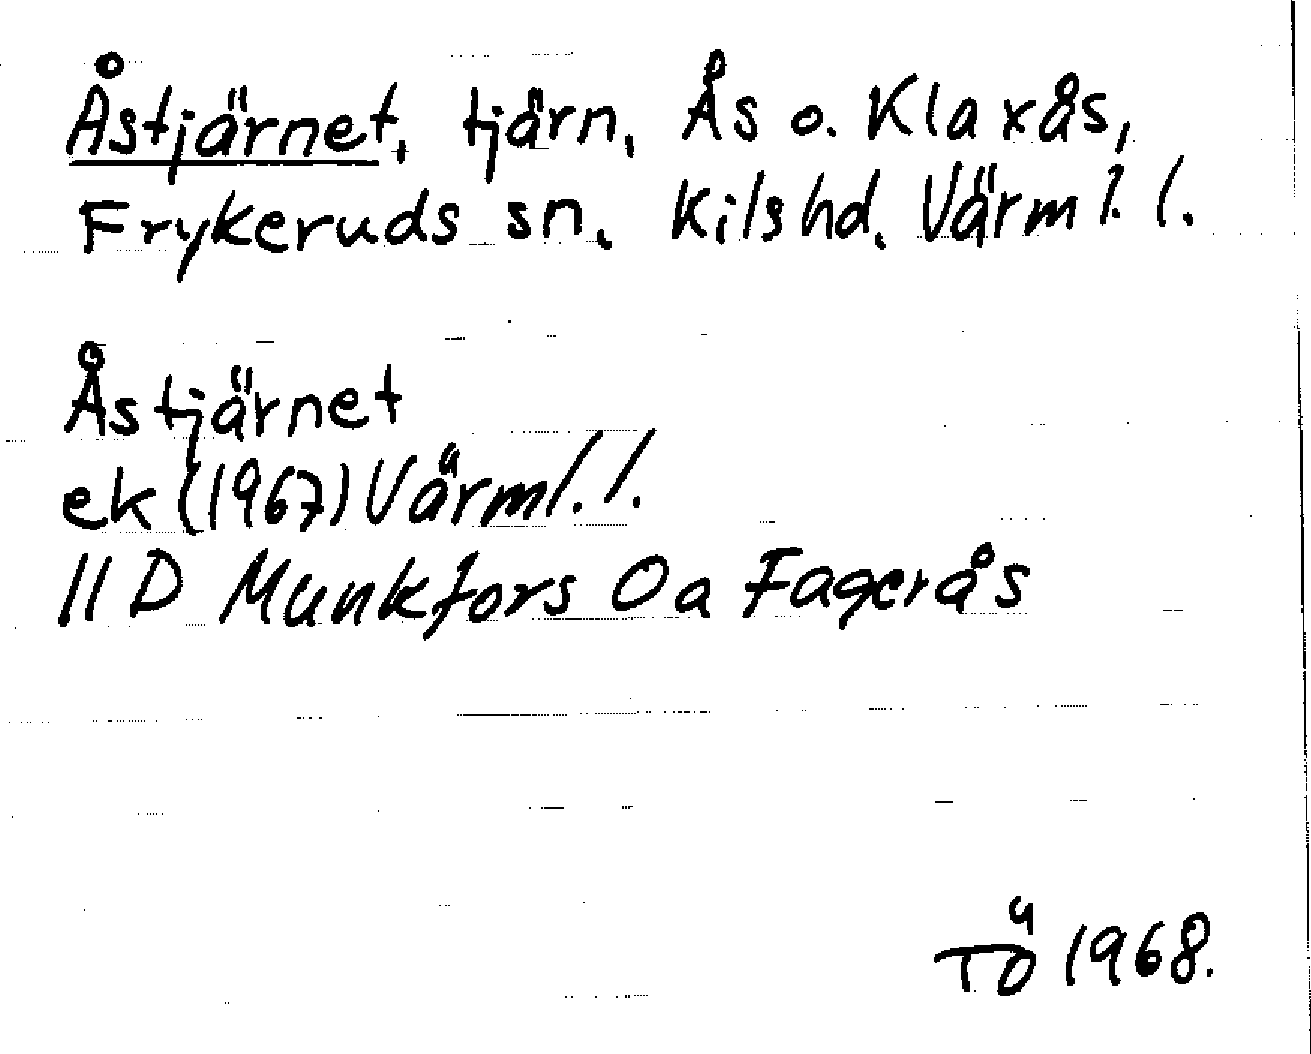 Åstjärnet, tjärn, Ås o. Klaxås,
Frykeruds sn, Kils hd, Värml. l.
Åstjärnet
ek (1967) Värml. l.
11 D Munkfors 0a Fagerås
TÖ 1968.